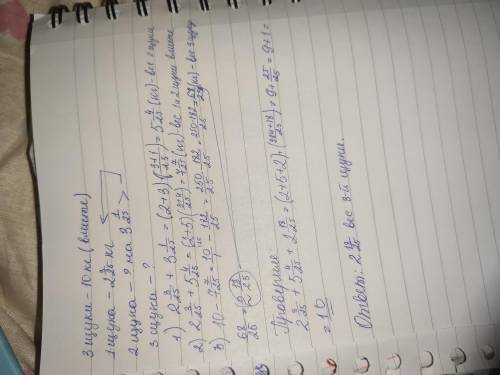 3 щуки - 10 кг (вместе)
1 щука - 2 3/25 кг
2 щука - ? на 3 1/25 >
3 щука - ?
1) 2 3/25 + 3 1/25 = (2+3) + (3+1)/25 = 5 4/25 (кг) - вес 2 щуки
2) 2 3/25 + 5 4/25 = (2+5) (3+4)/25 = 7 7/25 (кг) - вес 1 и 2 щуки вместе
3) 10 - 7 7/25 = 10/1 - 182/25 = 250/25 - 182/25 = 250-182/25 = 68/25 (кг) - вес 3 щуки
68/25 = 2 18/25
Проверяем:
2 3/25 + 5 4/25 + 2 18/25 = (2+5+2) + (3+4+18)/25 = 9 + 25/25 = 9+1 =
= 10
Ответ: 2 18/25 вес 3-й щуки.